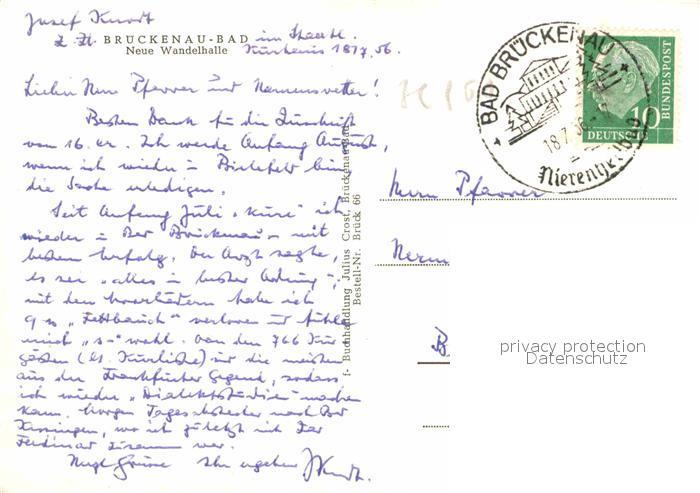 Josef Kurdt
z. Zt. BRÜCKENAU-BAD im Staatl.
Neue Wandelhalle Kurheim 18/7.56.
Lieber Herr Pfarrer und Namensvetter!
Besten Dank für die Zuschrift
vom 16. er. Ich werde Anfang August,
wenn ich wieder in Bielefeld bin,
die Sache erledigen.
Seit Anfang Juli „kure" ich
wieder in Bad Brückenau mit
bestem Erfolg. Der Arzt sagte,
es sei „alles in bester Ordnung";
mit den
habe ich
9 „Fettbauch" verloren und fühle
mich wohl. Von den 766 Kur
gästen (lt. Kurliste) sind die meisten
aus der Frankfurter Gegend, sodass
ich wieder „Dialektstudien" machen
kann. Morgen Tagesabstecher nach Bad
Kissingen, wo ich zuletzt mit
Ferdinar zusammen war.
Grüsse Ihr ergebener Kurdt.
f- Buchhandlung Julius Crost, Brückenau-Bad
Bestell-Nr. Brück 66
BAD BRÜCKENAU
18.7.56
Nierenheilbad
DEUTSCHE
BUNDESPOST
10
Herrn Pfarrer
Herm
B
privacy protection
Datenschutz